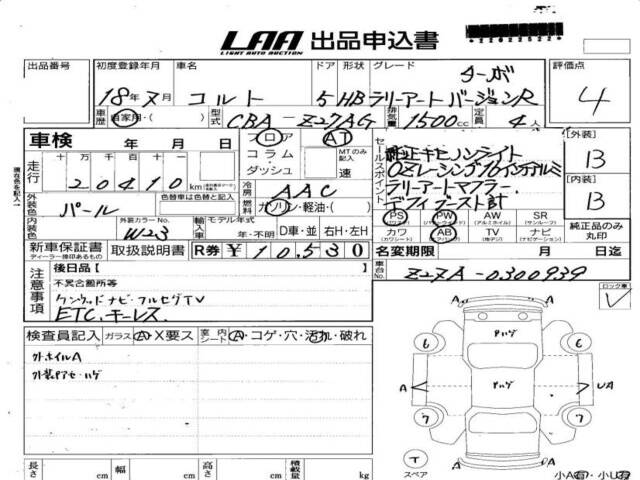 LAA 出品申込書
LIGHT AUTO AUCTION
出品番号 初度登録年月 車名 ドア 形状 グレード 評価点
ターボ
18年7月 コルト 5 HB ラリーアートバージョンR 4
車歴 自家用・( ) 型式 CBA-Z27AG 排気量 1500cc 定員 4人
車検 年 月 日 フロア AT セールスポイント 純正キセノンライト 【外装】
コラム・ MTのみ記入 OZレーシング B
ダッシュ 速 ラリーアートマフラー.
走行 十万千百十一 デフィブースト計 【内装】
20410 冷房 AAC B
外装色 パール 色替車は色替と記入 燃料 ガソリン・軽油・( ) PS PW AW SR
内装色 外装カラーNo. W23 輸入車 モデル年式 年・不明 D車・並 右H・左H カワ AB TV ナビ 純正品のみ丸印
新車保証書 取扱説明書 R券 ¥10,530 名変期限 月 日迄
ディーラー捺印あるもの
車台No. Z27A-0300939
注意事項 後日品【 】
不具合箇所等
ケンウッドナビ・フルセグTV
ETC.キーレス.
ロック車
検査員記入 ガラス A・X要ス 室内シート A・コゲ・穴・汚れ・破れ
外ホイルA
6 6
A A UA
7 7
T
スペア
長さ cm 幅 cm 高さ cm 積載量 kg